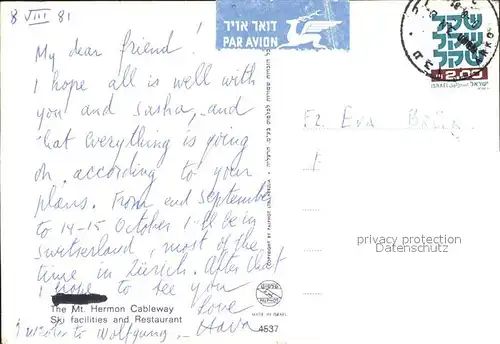 8 VIII 81
דואר אויר
PAR AVION
שקל
שקל
שקל
2.00
ISRAEL اسرائيل ישראל
My dear friend!
I hope all is well with
you and Sasha, and
that everything is going
on according to your
plans. From end September
to 14-15 October I'll be in
Switzerland, most of the
time in Zürich. After that
I hope to see you
Love
Hava
The Mt. Hermon Cableway
Ski facilities and Restaurant
I wrote to Wolfgang,
Eva
COPYRIGHT BY PALPHOT
MADE IN ISRAEL
4537
privacy protection
Datenschutz